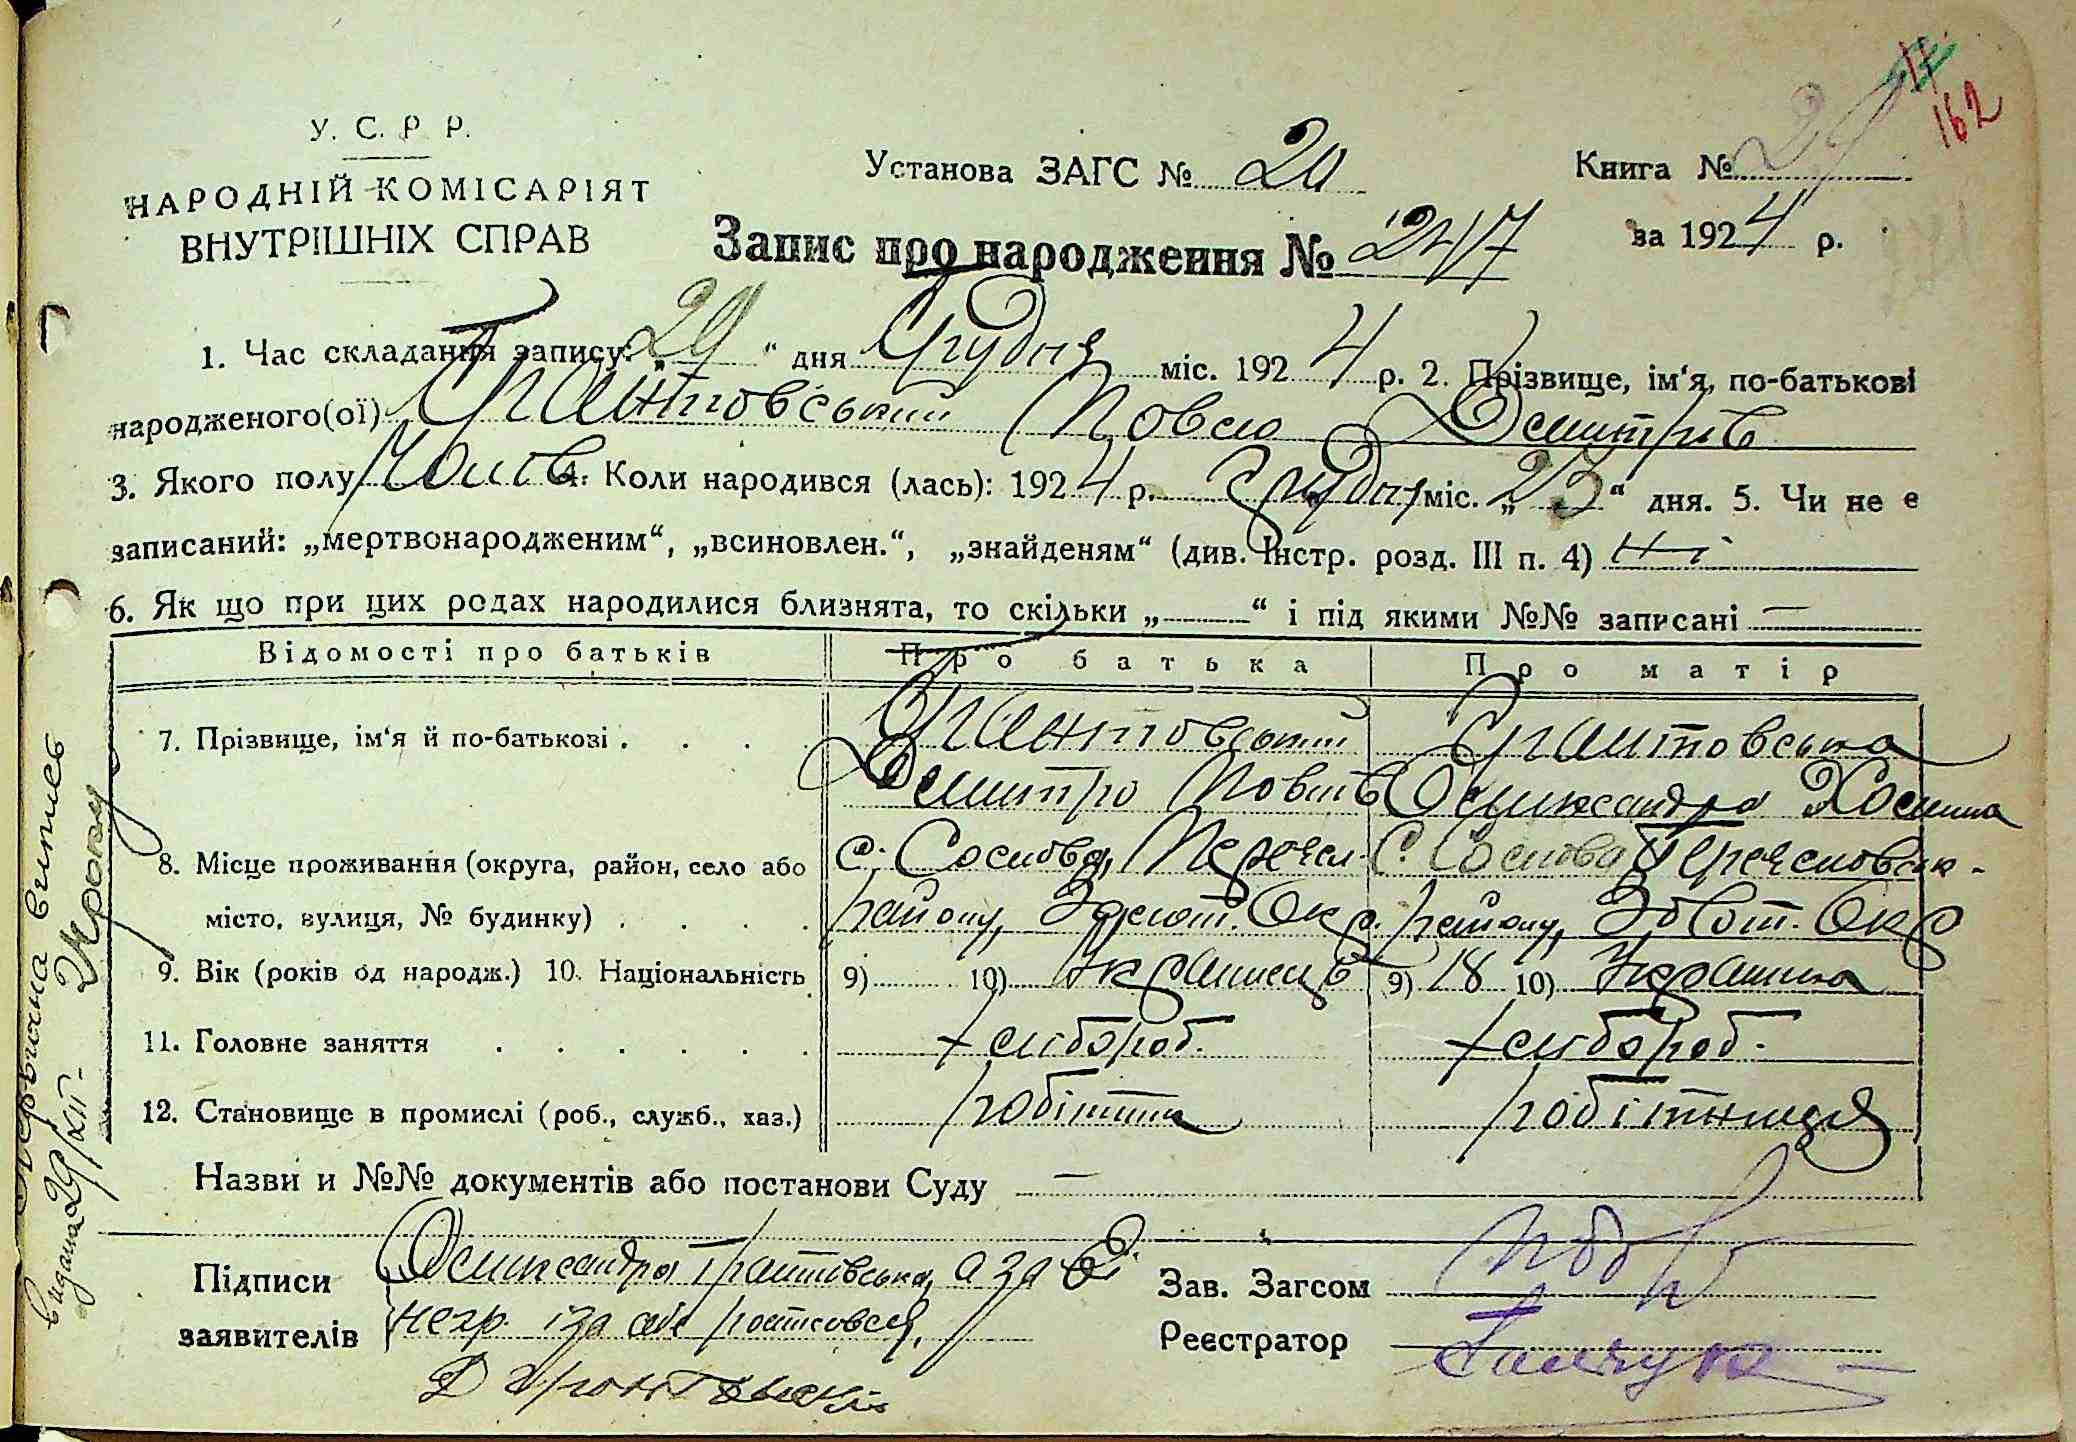 162
У. С. Р. Р.
НАРОДНІЙ КОМІСАРІЯТ
ВНУТРІШНІХ СПРАВ
Установа ЗАГС № 20
Книга №
Запис про народження № 247
за 1924 р.
1. Час складання запису: „29“ дня Грудня міс. 1924 р. 2. Прізвище, ім‘я, по-батькові
народженого(ої) Грантовський Повло Демитрів
3. Якого полу Чолов 4. Коли народився (лась): 1924 р. Грудня міс. „23“ дня. 5. Чи не є
записаний: „мертвонародженим“, „всиновлен.“, „знайденям“ (див. Інстр. розд. III п. 4) Ні
6. Як що при цих родах народилися близнята, то скільки „—“ і під якими №№ записані —
Відомості про батьків Про батька Про матір
7. Прізвище, ім‘я й по-батькові . . . . Грантовський Грантовська
Демитро Повлів Олександра Хомина
8. Місце проживання (округа, район, село або с. Соснова, Переясл. С. Соснова Переясловськ-
місто, вулиця, № будинку) . . . . району, Золот. Окр. району, Золот. Окр
9. Вік (років од народж.) 10. Національність 9) 10) Українець 9) 18 10) Українка
11. Головне заняття . . . . . . хлібороб. хлібороб.
12. Становище в промислі (роб., служб., хаз.) робітник робітниця
Назви и №№ документів або постанови Суду —
Підписи Олександра Грантовська, а за її
заявителів негр. і за себе росписовся,
Д Грантовский
Зав. Загсом
Реєстратор
Первична випись
видана 29/XII- 24 року